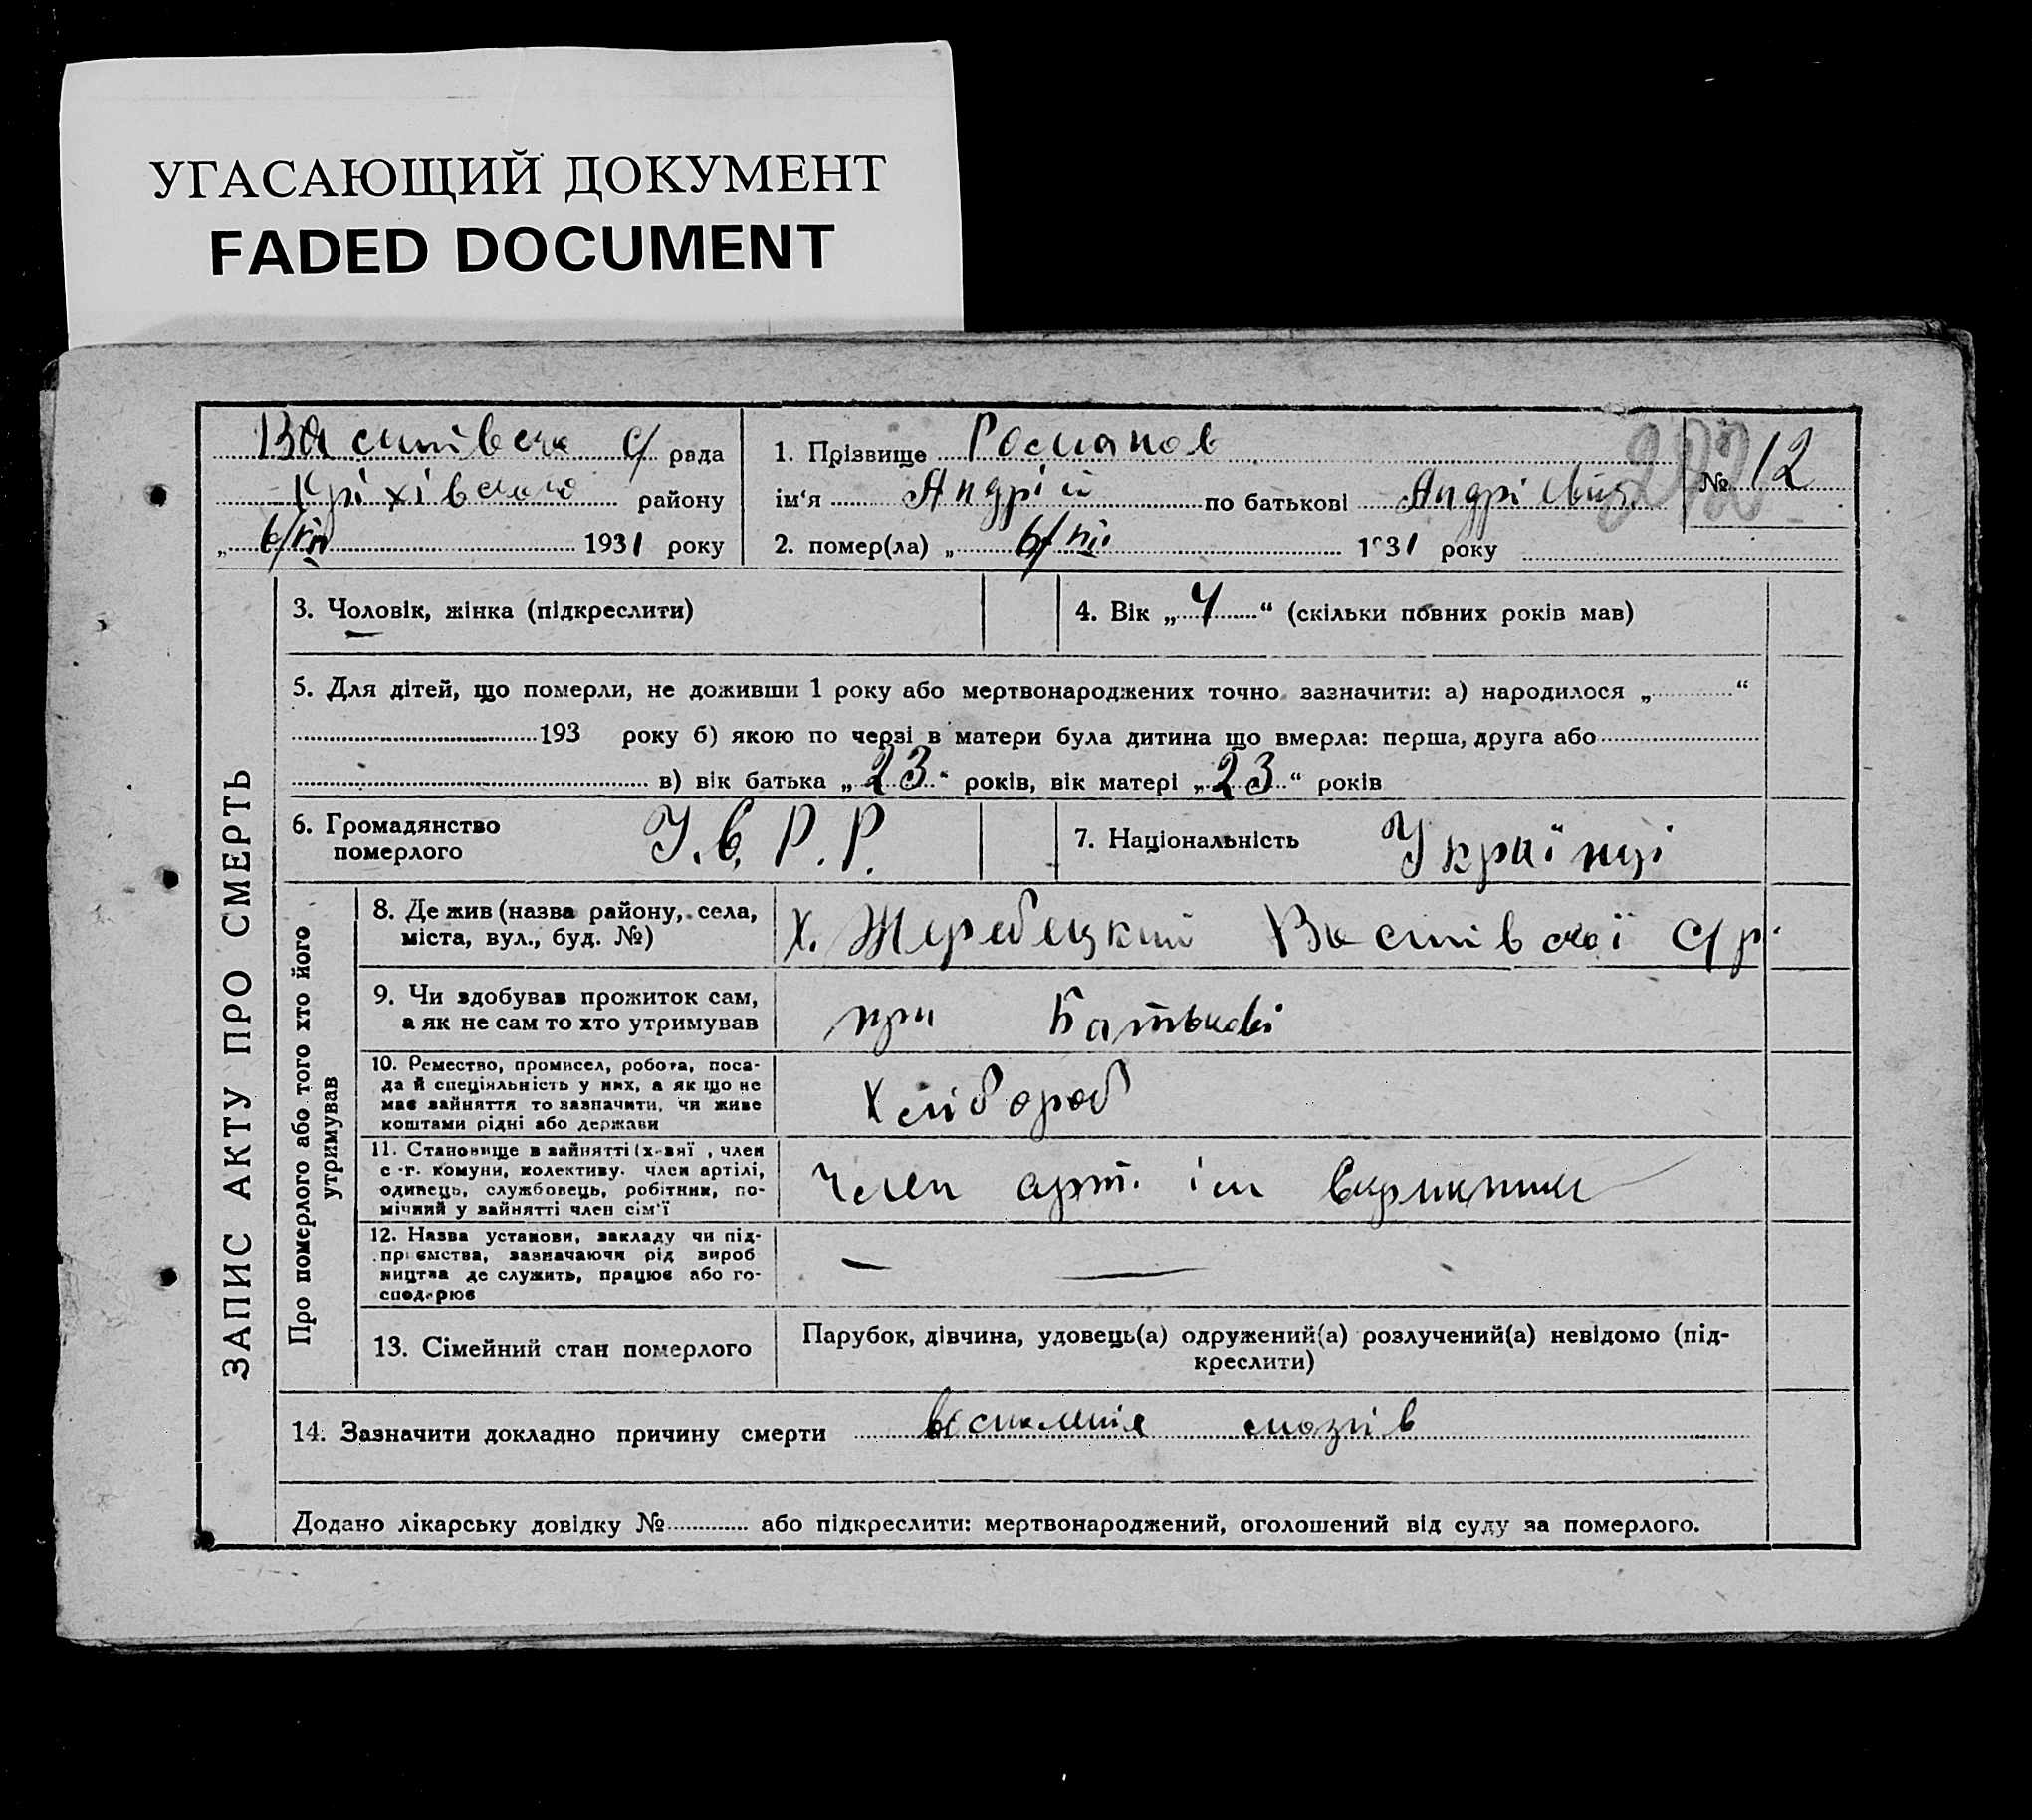 УГАСАЮЩИЙ ДОКУМЕНТ
FADED DOCUMENT
с/ рада
району
„ 6/ІІІ 1931 року
1. Прізвище Романов
ім'я Андрій по батькові Андрієвич
№ 12
2. помер(ла) „ 6/ІІІ 1931 року
ЗАПИС АКТУ ПРО СМЕРТЬ
3. Чоловік, жінка (підкреслити)
4. Вік „ 4 “ (скільки повних років мав)
5. Для дітей, що померли, не доживши 1 року або мертвонароджених точно зазначити: а) народилося „ “
193 року б) якою по черзі в матери була дитина що вмерла: перша, друга або
в) вік батька „ 23 “ років, вік матері „ 23 “ років
6. Громадянство
померлого
У.С.Р.Р.
7. Національність Українці
Про померлого або того хто його
утримував
8. Де жив (назва району, села,
міста, вул., буд. №)
х. Жеребецкий с/р.
9. Чи здобував прожиток сам,
а як не сам то хто утримував
при Батькові
10. Ремество, промисел, робота, поса-
да й спеціяльність у них, а як що не
має зайняття то зазначити, чи живе
коштами рідні або держави
Хлібороб
11. Становище в зайнятті (х-вяї , член
с -г. комуни, колективу. член артілі,
одинець, службовець, робітник, по-
мічний у зайнятті член сім'ї
Член арт. ім
12. Назва установи, закладу чи під-
приємства, зазначаючи рід вироб
ництва де служить, працює або го-
сподарює
— —
13. Сімейний стан померлого
Парубок, дівчина, удовець(а) одружений(а) розлучений(а) невідомо (під-
креслити)
14. Зазначити докладно причину смерти мозгів
Додано лікарську довідку № або підкреслити: мертвонароджений, оголошений від суду за померлого.